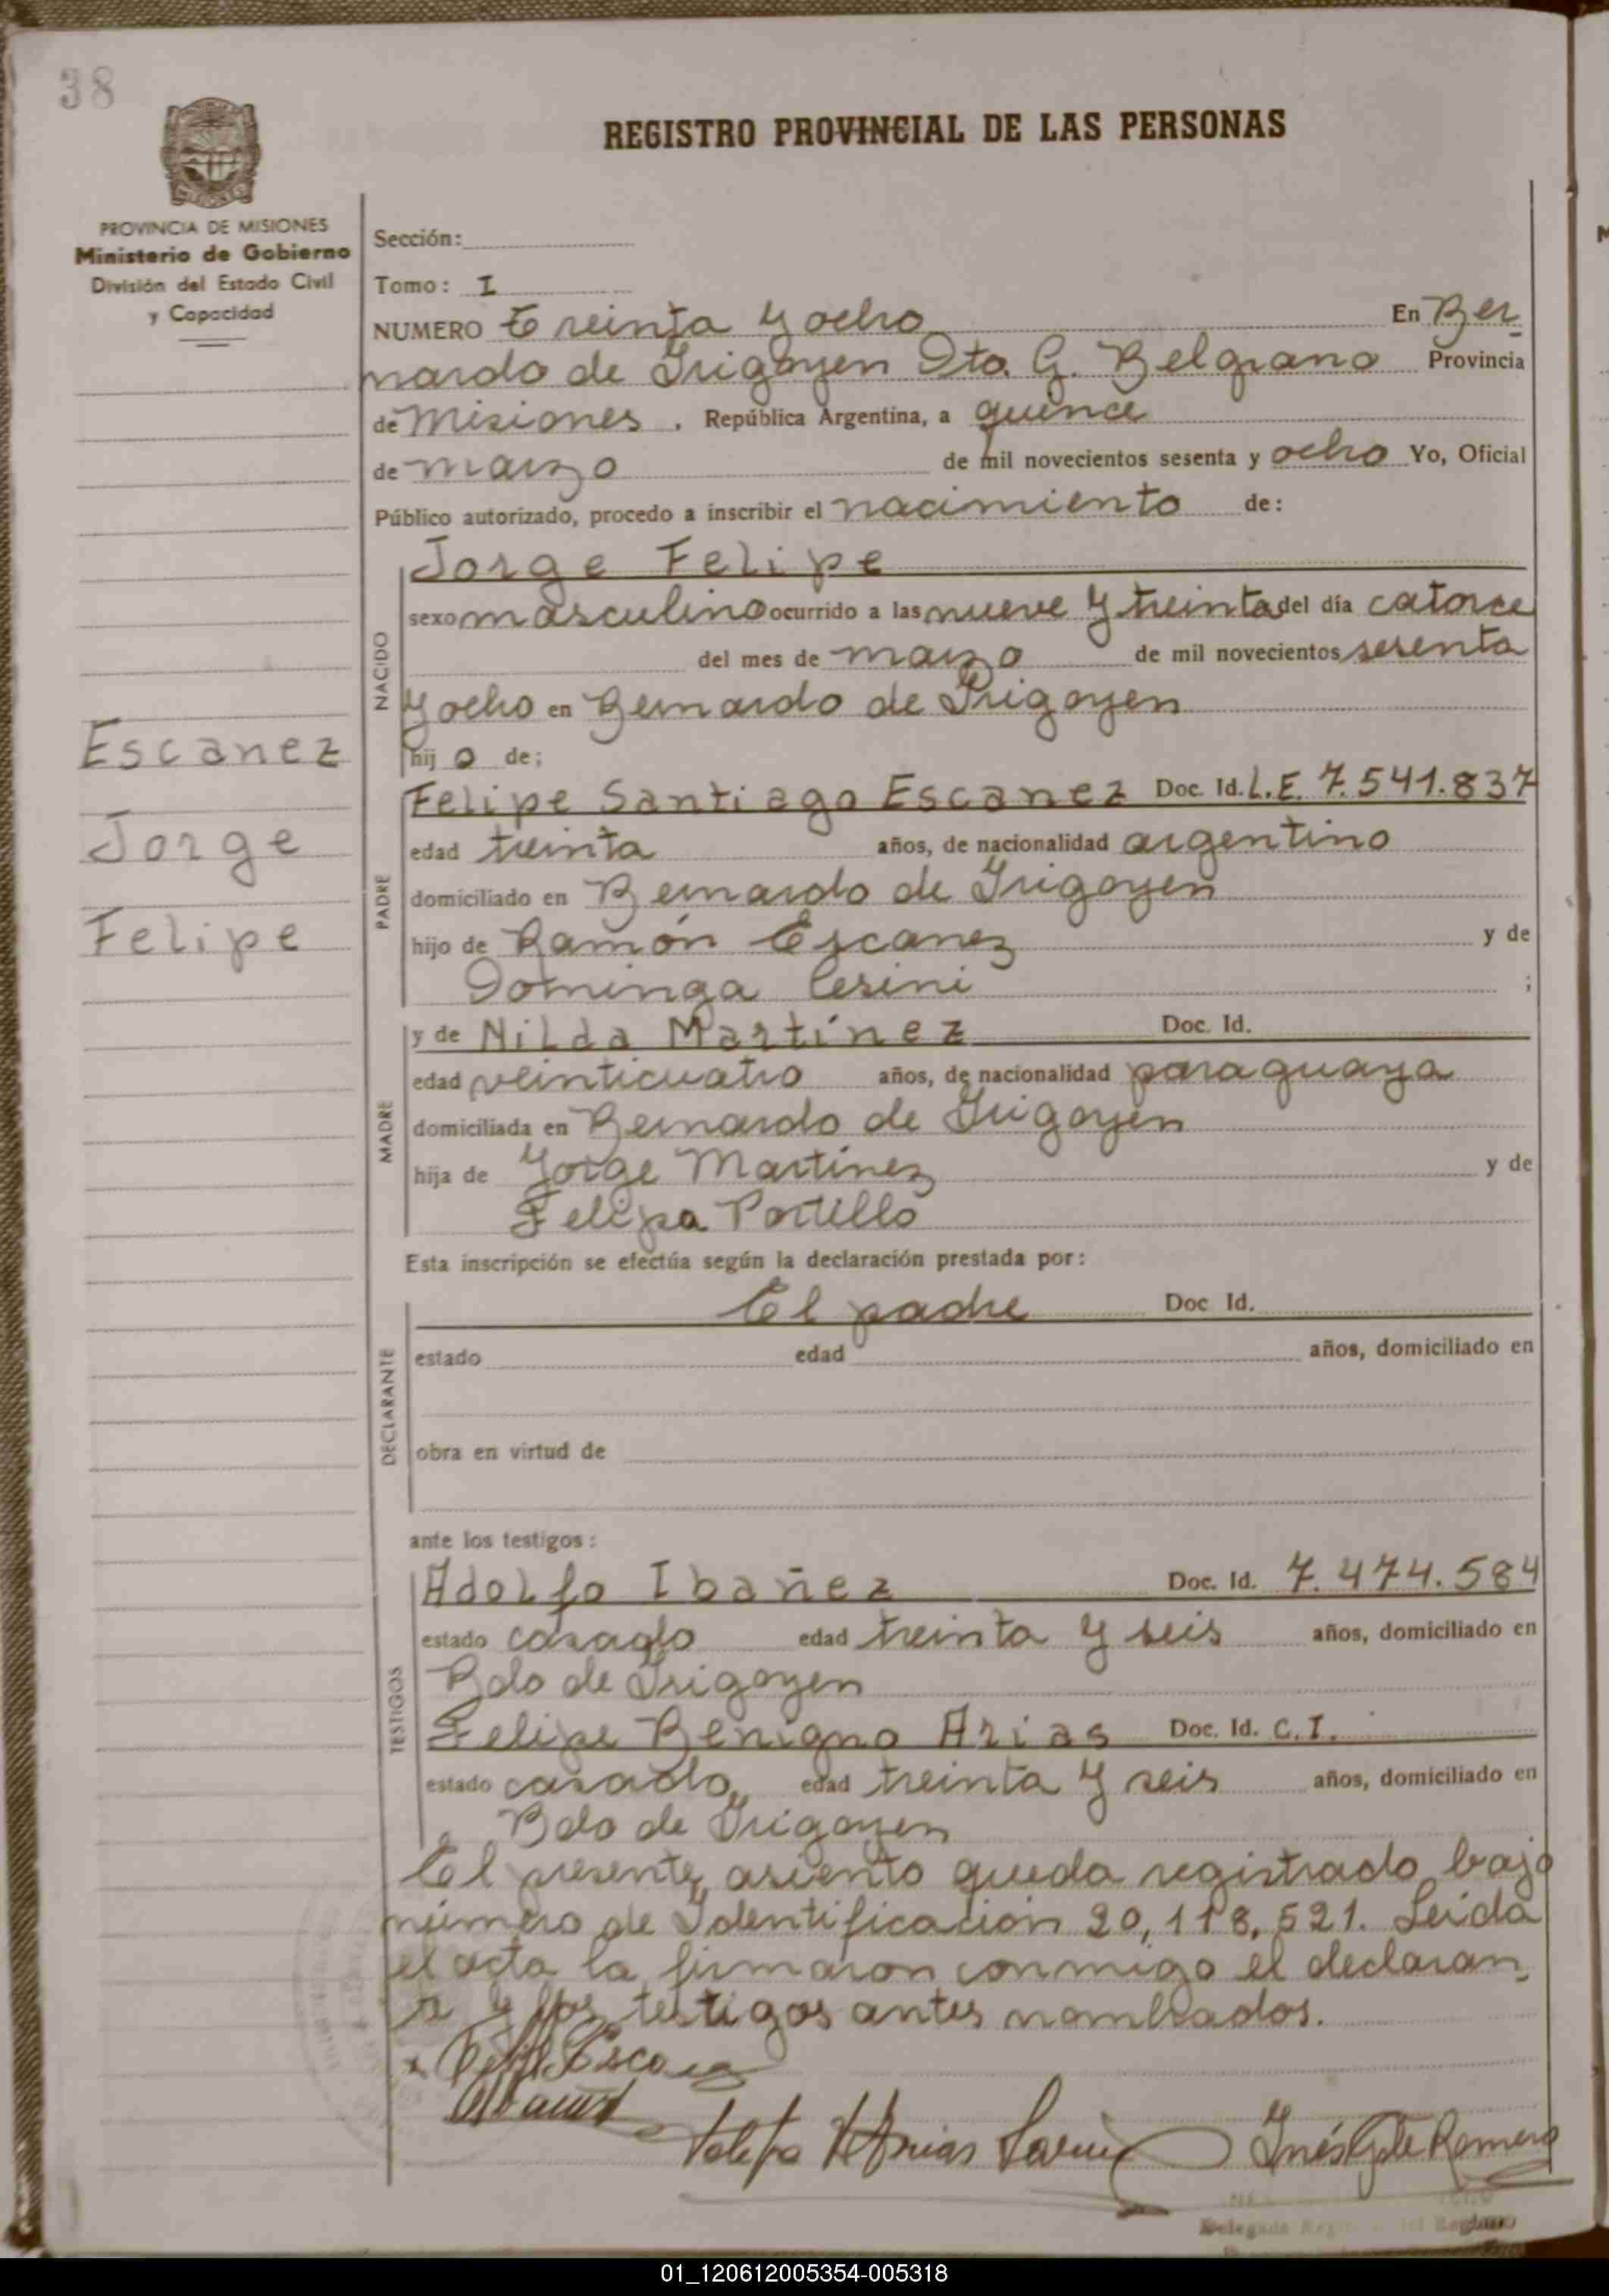 38
REGISTRO PROVINCIAL DE LAS PERSONAS
PROVINCIA DE MISIONES
Ministerio de Gobierno
División del Estado Civil
y Capacidad
Sección:
Tomo: I
NUMERO Treinta y ocho En Ber-
nardo de Irigoyen Dto. G. Belgrano Provincia
de Misiones. República Argentina, a quince
de marzo de mil novecientos sesenta y ocho Yo, Oficial
Público autorizado, procedo a inscribir el nacimiento de:
NACIDO
Jorge Felipe
sexo masculino ocurrido a las nueve y treinta del día catorce
del mes de marzo de mil novecientos sesenta
y ocho en Bernardo de Irigoyen
hijo de;
Escanez
Jorge
Felipe
PADRE
Felipe Santiago Escanez Doc. Id. L.E. 7.541.837
edad treinta años, de nacionalidad argentino
domiciliado en Bernardo de Irigoyen
hijo de Ramón Escanez y de
Dominga Cesini ;
MADRE
y de Nilda Martínez Doc. Id.
edad veinticuatro años, de nacionalidad paraguaya
domiciliada en Bernardo de Irigoyen
hija de Jorge Martínez y de
Felipa Portillo
Esta inscripción se efectúa según la declaración prestada por:
DECLARANTE
El padre Doc. Id.
estado edad años, domiciliado en
obra en virtud de
ante los testigos:
TESTIGOS
Adolfo Ibañez Doc. Id. 7.474.584
estado casado edad treinta y seis años, domiciliado en
Bdo de Irigoyen
Felipe Benigno Arias Doc. Id. C.I.
estado casado edad treinta y seis años, domiciliado en
Bdo de Irigoyen
El presente asiento queda registrado bajo
número de Identificación 20,118,521. Leída
el acta la firmaron conmigo el declaran-
te y los testigos antes nombrados.
Inés G de Romero
01_120612005354-005318